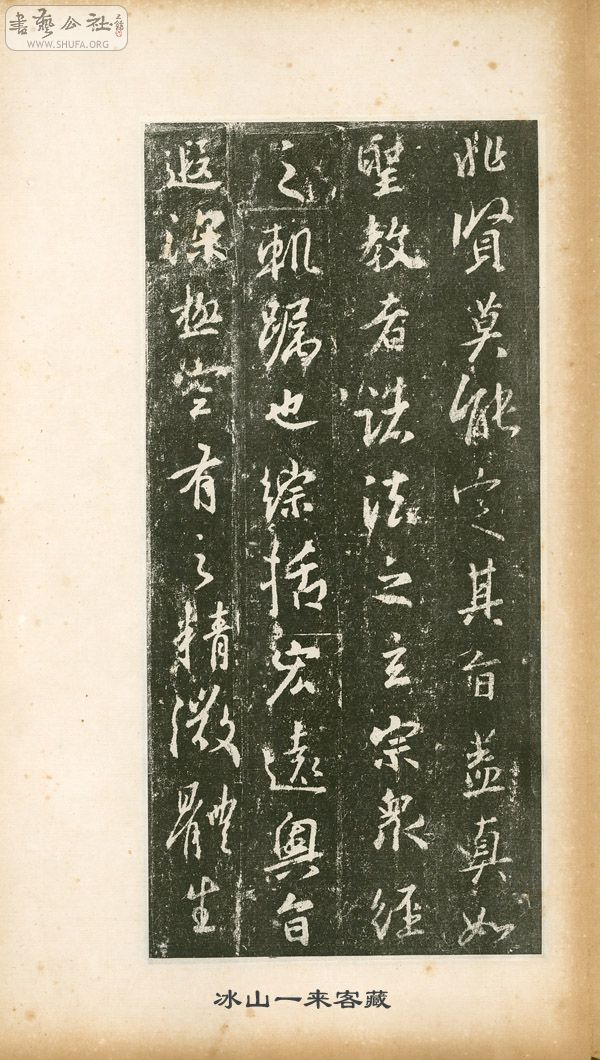 書藝公社
WWW.SHUFA.ORG
非賢莫能定其旨蓋真如
聖教者諸法之玄宗衆經
之軌躅也綜括宏遠奧旨
遐深極空有之精微體生
冰山一来客藏